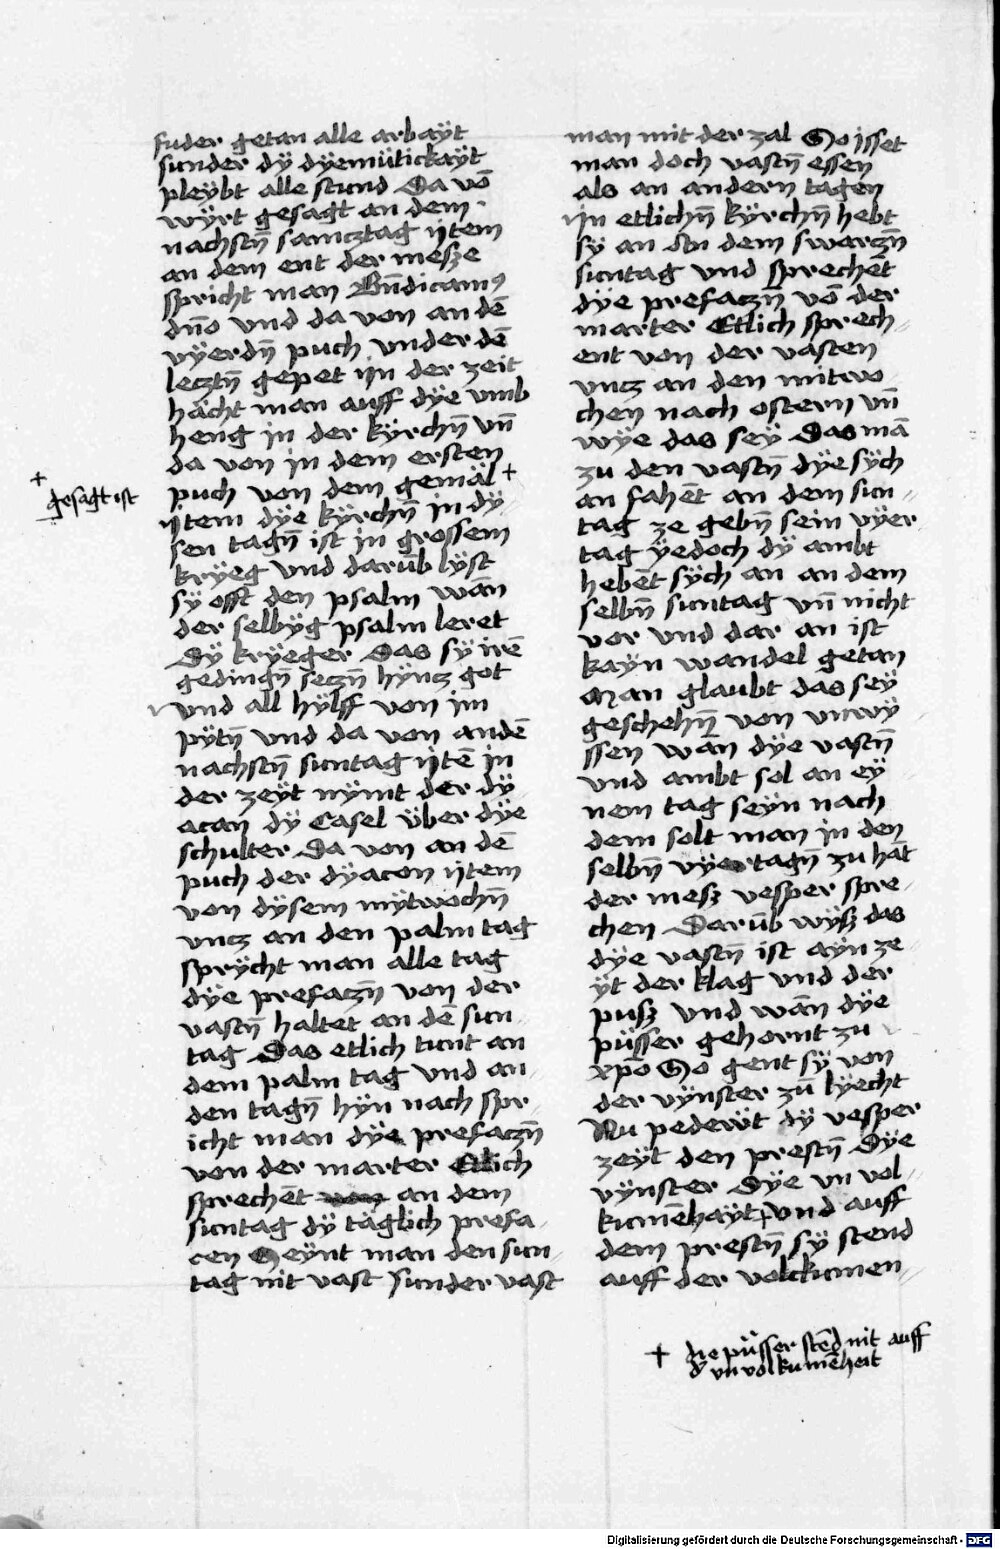 suder getan alle arbaÿt
sunder dÿ dÿemütickaÿt
pleÿbt alle stund Da vō
wÿrt gesagt an dem
nachstn̄ samcztag ijtem
an dem ent der mesze
spricht man Bn̄dicamꝰ
dn̄o vnd da von an dē
vÿerdn̄ puch vnder dē
lecztn̄ gepet ijn der zeit
hächt man auff dÿe vmb
heng in der kÿrchn̄ vn̄
da von in dem ersten
puch von dem gemäl +
+ gesagt ist
ijtem dÿe kÿrchn̄ in dÿ
sen tagn̄ ist in grossem
krÿeg vnd darūb lÿst
sÿ offt den psalm wān
der selbÿg psalm leret
Dÿ krÿeger Das sÿ irē
gedingn̄ seczn̄ hÿncz got
vnd all hÿlff von im
pÿtn̄ vnd da von an dē
nachstn̄ suntag ijtē in
der zeÿt nÿmt der dÿ
acan dÿ Casel über dÿe
schulter Da von an dē
puch der dÿacon ijtem
von dÿsem mÿtwochn̄
vncz an den palm tag
sprÿcht man alle tag
dÿe prefaczn̄ von der
vastn̄ haltet an dē sun
tag Das etlich tunt an
dem palm tag vnd an
den tagn̄ hÿn nach spr
icht man dÿe prefaczn̄
von der marter Etlich
sprechēt von an dem
suntag dÿ täglich prefa
cen Seÿnt man den sun
tag nit vast sunder vast
man mit der zal So isset
man doch vastn̄ essen
als an andern tagen
ijn etlichn̄ kÿrchn̄ hebt
sÿ an dem swarzn̄
suntag vnd sprechēt
dÿe prefaczn̄ vō der
marter Etlich sprech
ent von der vasten
vncz an den mitwo
chen nach ostern vn̄
wÿe das seÿ Das mā
zu den vastn̄ dÿe sÿch
an fahēt an dem sun
tag ze gebn̄ sein vÿer
tag ÿedoch dÿ ambt
hebēt sÿch an an dem
selbn̄ suntag vn̄ nicht
vor vnd dar an ist
kaÿn wandel getan
Man glaubt das seÿ
geschehn̄ von vnwÿ
ssen wān dÿe vastn̄
vnd ambt sol an eÿ
nem tag seÿn nach
dem solt man in den
selbn̄ vÿertagn̄ zu hāt
der mesz vesper spre
chen Darūb wÿsz das
dÿe vastn̄ ist aÿn ze
ÿt der klag vnd der
pusz vnd wān dÿe
püsser gehornt zu
xp̄o So gent sÿ von
der vÿnster zū lÿecht
Nu pederüt dÿ vesper
zeÿt den prestn̄ Dÿe
vÿnster Dÿe vn vol
kumēhaÿt + vnd auff
dem prestn̄ sÿ stend
auff der volckumen
+ die püsser stēd nit auff
d' vnvolkumēheit
Digitalisierung gefördert durch die Deutsche Forschungsgemeinschaft - DFG